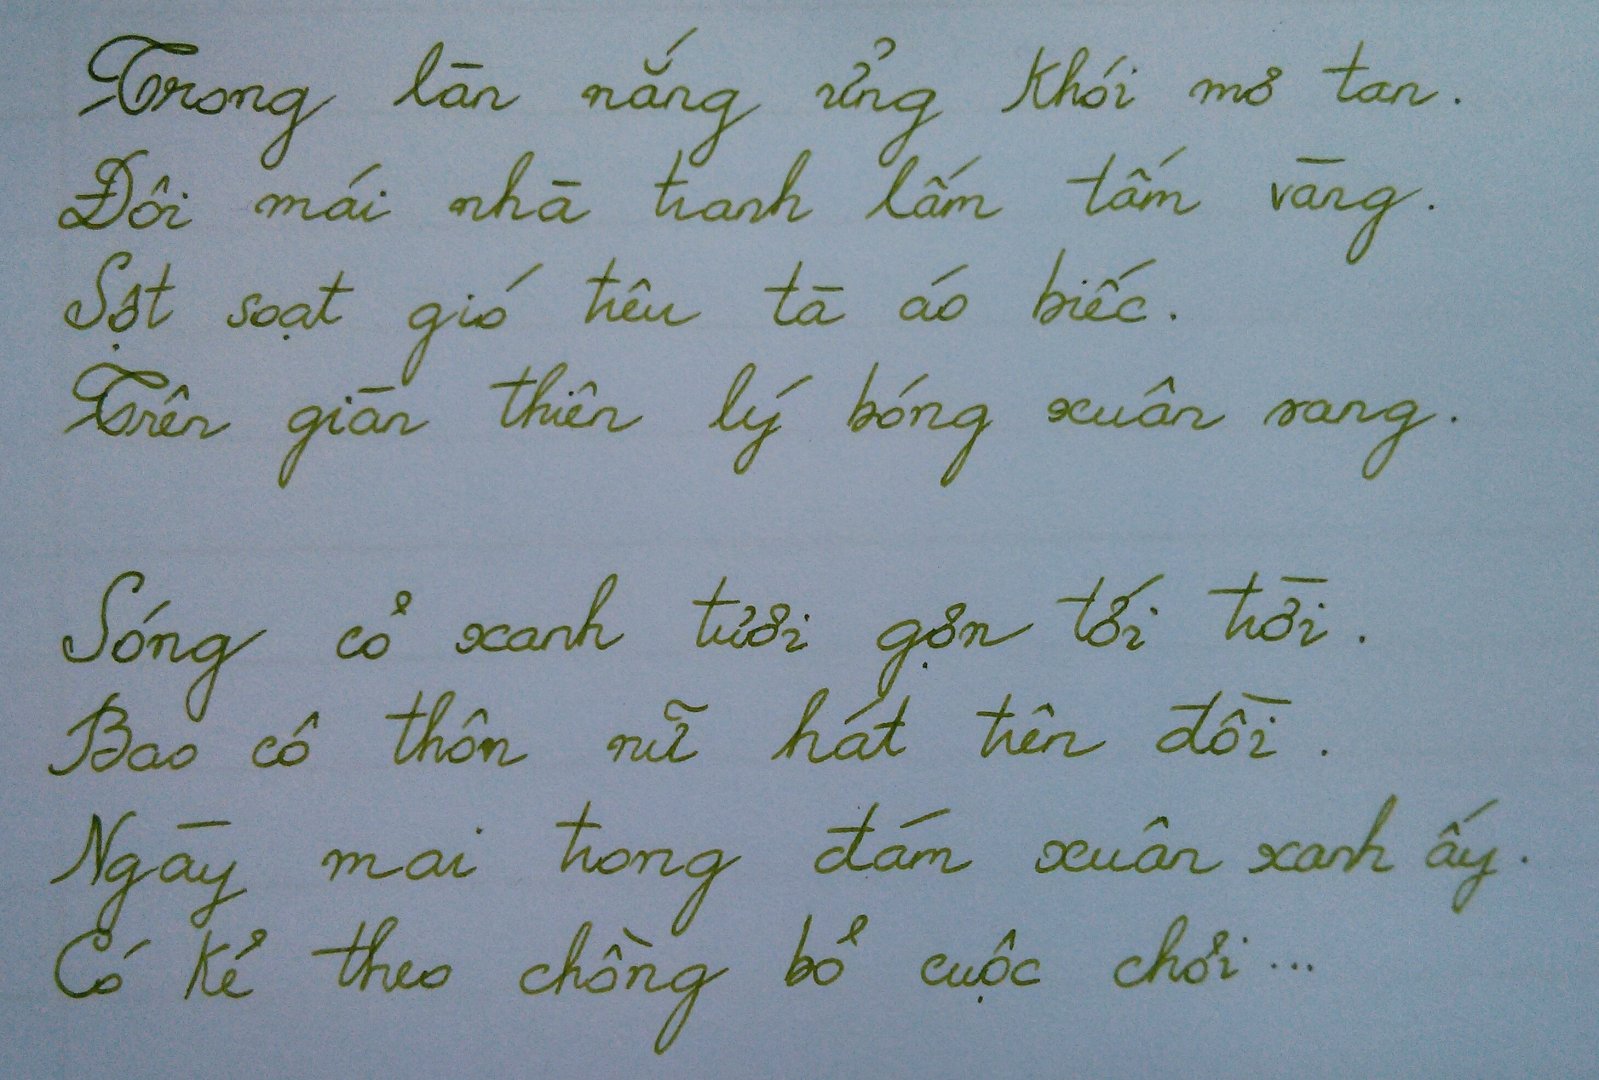 Trong làn nắng ửng khói mơ tan.
Đôi mái nhà tranh lấm tấm vàng.
Sột soạt gió trêu tà áo biếc.
Trên giàn thiên lý bóng xuân sang.
Sóng cỏ xanh tươi gợn tới trời.
Bao cô thôn nữ hát trên đồi.
Ngày mai trong đám xuân xanh ấy.
Có kẻ theo chồng bỏ cuộc chơi...